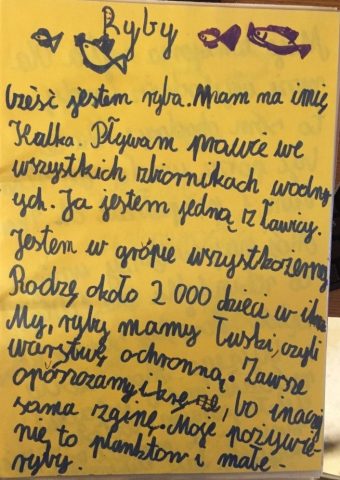 Ryby
Cześć jestem ryba. Mam na imię
Kalka. Pływam prawie we
wszystkich zbiornikach wodny
ych. Ja jestem jedną z Ławicy.
Jestem w grópie wszystkożerny
Rodzę około 2 000 dzieci w
My, ryby mamy Łuski, czyli
warstwę ochronną. Zawsze
opószczamy i , bo inaczej
sama zginę. Moje pożywie-
nie to plankton i małe-
ryby.